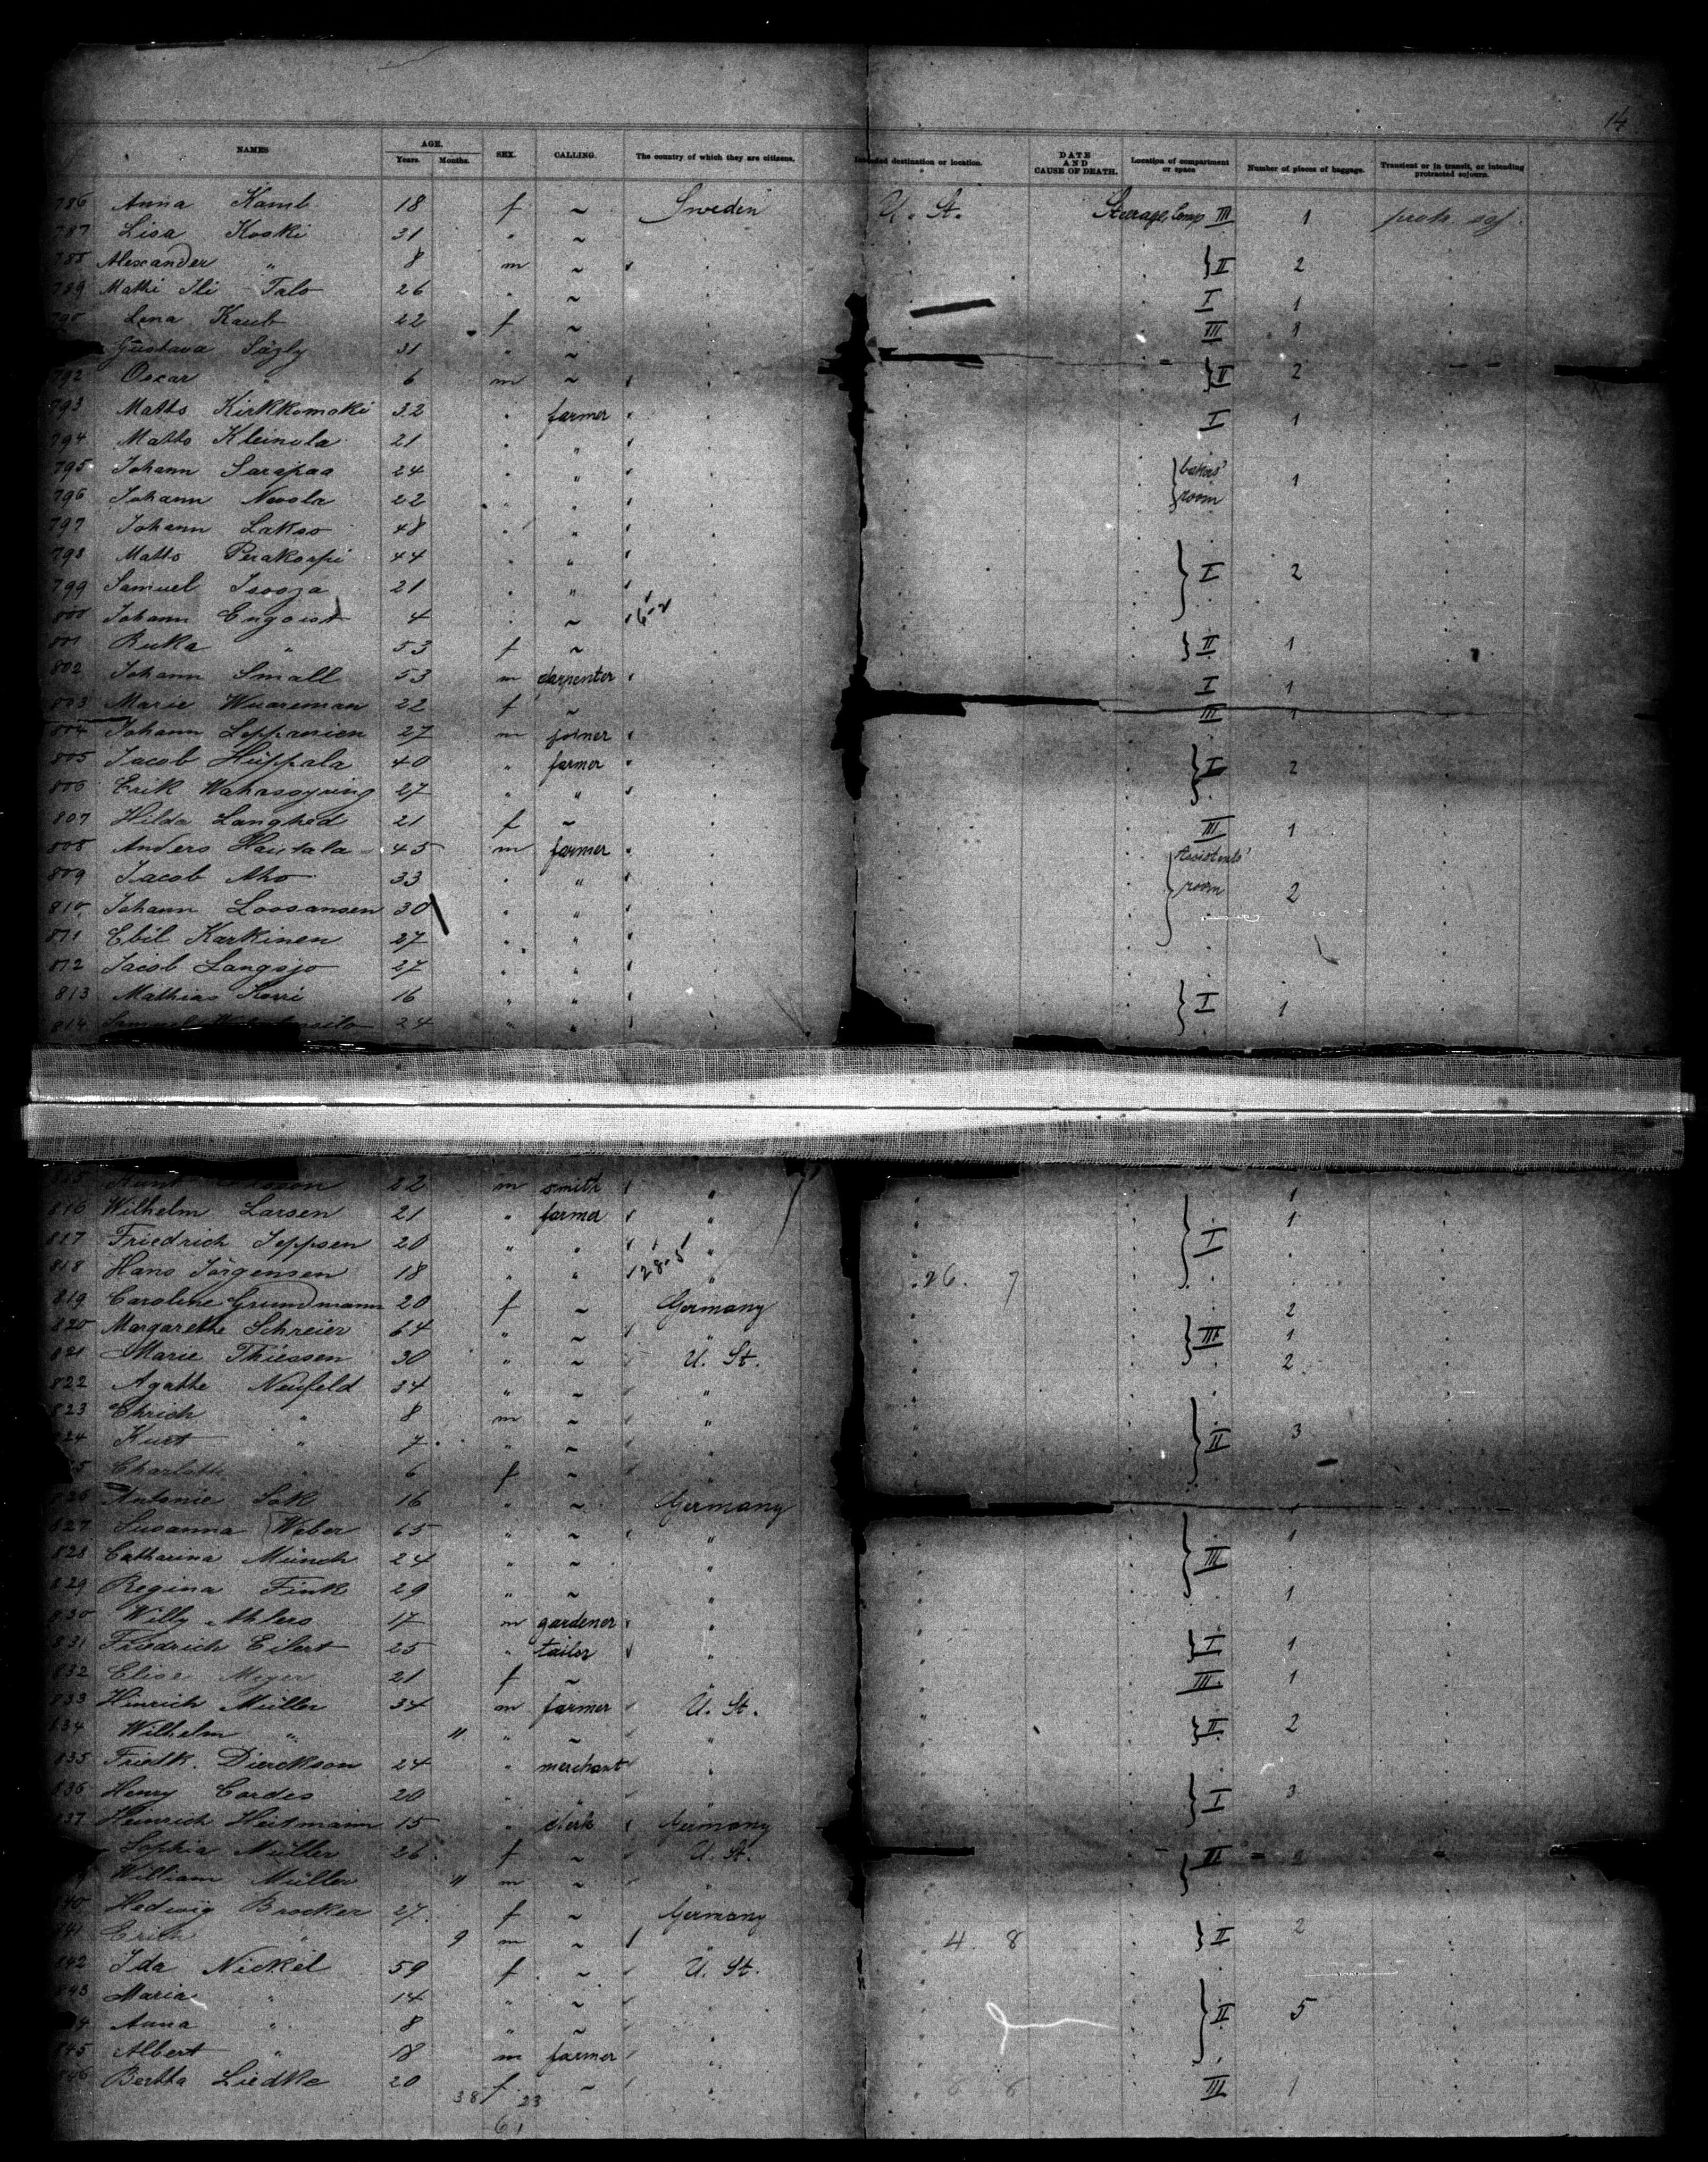 14
NAMES AGE. Years. Months. SEX. CALLING. The country of which they are citizens. Intended destination or location. DATE AND CAUSE OF DEATH. Location of compartment or space Number of pieces of baggage. Transient or in transit, or intending protracted sojourn.
786 Anna Kamb 18 f ~ Sweden U. St. Steerage, Comp III 1 protr. soj.
787 Lisa Koski 31 " ~
788 Alexander " 8 m ~ II 2
789 Mathi Ili-Talo 26 " ~ I 1
790 Lena Kaub 22 f ~ III 1
Gustava 31 " ~
792 Oscar " 6 m ~ II 2
793 Matts Kirkkomaki 32 " farmer I 1
794 Matts Kleinola 21 " "
795 Johann Sarapaa 24 " " room 1
796 Johann Neosla 22 " "
797 Johann Lakso 48 " "
798 Matts Perakorpi 44 " " I 2
799 Samuel Isooja 21 " "
800 Johann Enqoist 4 " ~
801 " 53 f ~ II 1
802 Johann Small 53 m carpenter I 1
803 Marie Wuareman 22 f ~ III 1
804 Johann 27 m joiner
805 Jacob Hüppala 40 " farmer I 2
806 Erik 27 " "
807 Hilda Langhed 21 f ~ III 1
808 Anders Hautala 45 m farmer Assistents'
809 Jacob Aho 33 " " room 2
810 Johann Loosansen 30 " "
811 Ebil Karkinen 27 " "
812 Jacob Langsjo 27 " "
813 Mathias Korri 16 " " I 1
814 Samuel 24 " "
815 22 m smith " 1
816 Wilhelm Larsen 21 " farmer " I 1
817 Friedrich Jeppsen 20 " " "
818 Hans Jörgensen 18 " " " 26. 7
819 Caroline Grundmann 20 f ~ Germany 2
820 Margarethe Schreier 64 " ~ " III 1
821 Marie Thiessen 30 " ~ U. St. 2
822 Agathe Neufeld 34 " ~ "
823 Ehrich " 8 m ~ " II 3
824 Kurt " 7 " ~ "
Charlotte " 6 f ~ "
826 Antonie Sak 16 " ~ Germany
827 Susanna Weber 65 " ~ " III 1
828 Catharina Münch 24 " ~ "
829 Regina Fink 29 " ~ " 1
830 Willy Ahlers 17 m gardener "
831 Friedrich Eilert 25 " tailer " I 1
832 Elise Meyer 21 f ~ " III 1
833 Hinrich Müller 34 m farmer U. St.
834 Wilhelm " 11 " ~ " II 2
835 Friedk. Dierckson 24 " merchant "
836 Henry Cordes 20 " " " I 3
837 Heinrich Heitmann 15 " clerk Germany
Sophia Müller 26 f ~ U. St. II
William Müller 11 m ~ "
840 Hedwig Brocker 27 f ~ Germany
841 Erich " 9 m ~ " 4 8 II 2
842 Ida Nickel 59 f ~ U. St.
843 Maria " 14 " ~ " II 5
Anna " 8 " ~ "
845 Albert " 18 m farmer "
846 Bertha Liedke 20 f ~ " 6 6 III 1
38 23
61